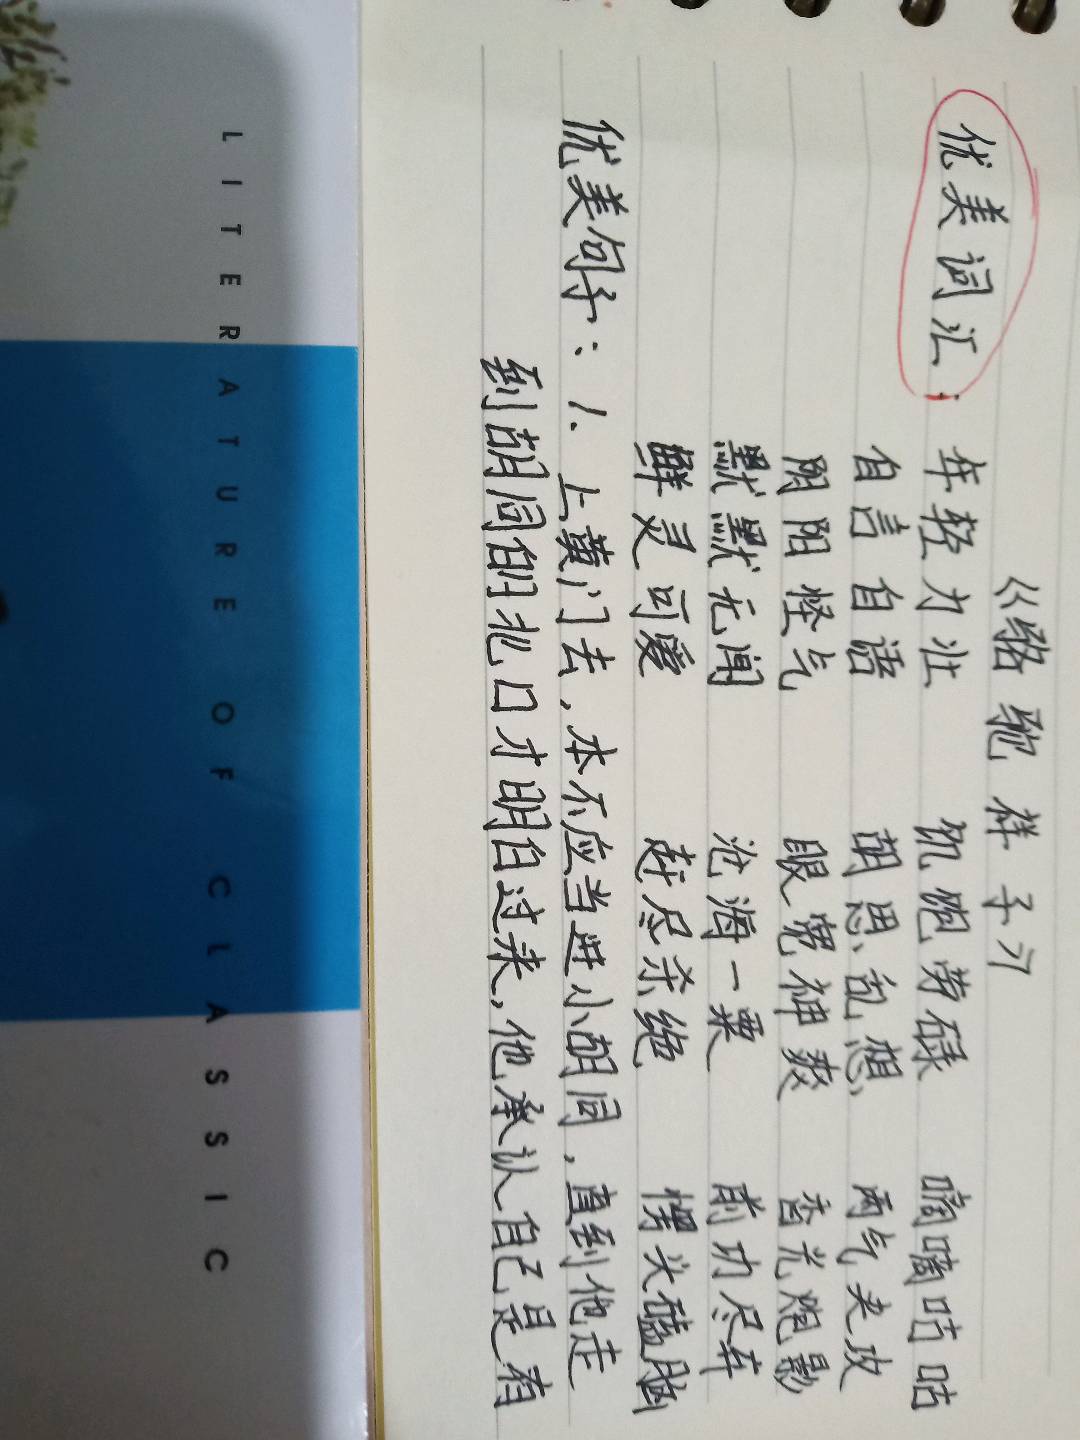 《络驰祥子》
优美词汇：年轻力壮 饥饱劳碌 嘀嘀咕咕
自言自语 胡思乱想 两气夹攻
阴阳怪气 眼宽神爽 香光炮影
默默无闻 沧海一粟 前功尽弃
鲜灵可爱 赶尽杀绝 愣头磕脑
优美句子：1、上黄门去，本不应当进小胡同，直到他走
到胡同的北口才明白过来，他承认自己是有
LITERATURE OF CLASSIC